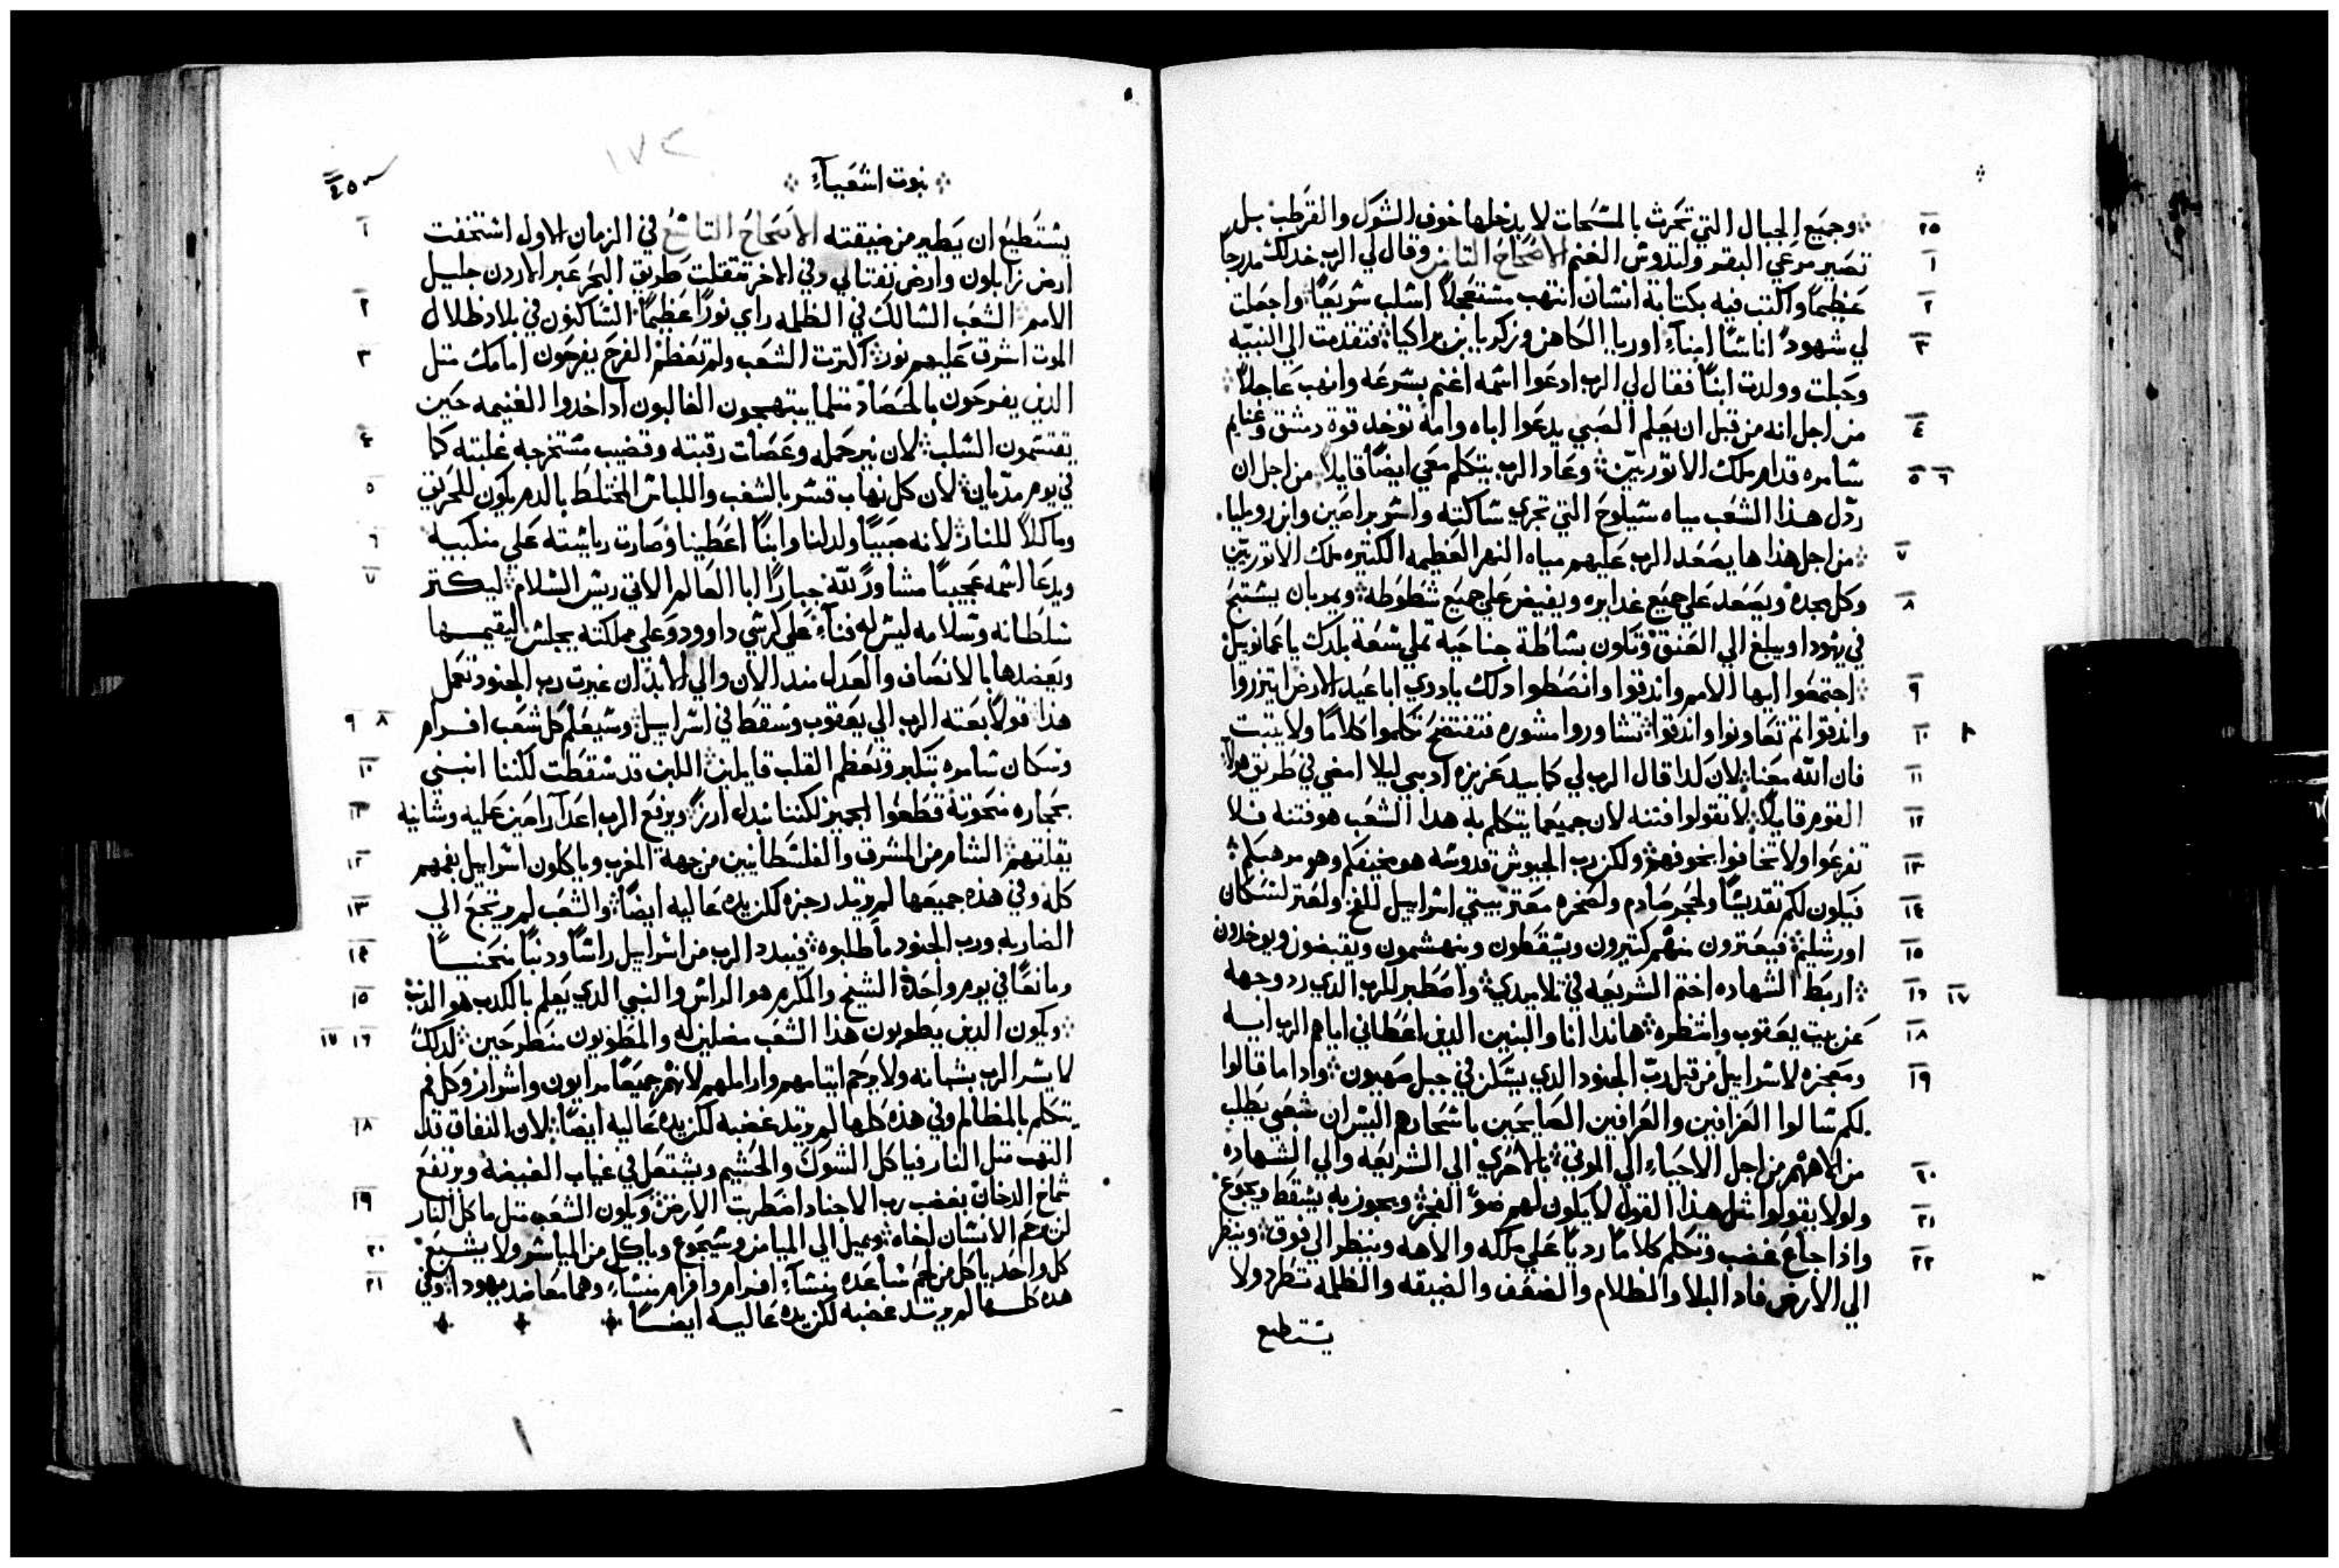 وجميع الجبال التي تحرث بالمسحات لا يدخلها خوف الشوك والقرطب بل
٢٥
تصير مرعي البقر ولتدوس الغنم الاصحاح الثامن وقال لي الرب خد لك مدرجا
١
عظيما واكتب فيه بكتابة انسان انتهب مستعجلا اسلب سريعا واجعلت
٢
لي شهودا اناسا امناء اوريا الكاهن وزكريا بن براكيا فتقدمت الي النبيه
٣
وحبلت وولدت ابنا فقال لي الرب ادعوا اسمه اغنم بسرعه وانهب عاجلا
من اجل انه من قبل ان يعلم الصبي يدعوا اباه وامه توخد قوة دمشق وغنايم
٤
سامره قدام ملك الاتوريين وعاد الرب يتكلم معي ايضا قايلا من اجل ان
٥ ٦
ردل هذا الشعب مياه سيلوح التي تجري ساكته واسر براصين وابن رومليا
من اجل هذا ها يصعد الرب عليهم مياه النهر العظيمه الكتيره ملك الاتوريين
٧
وكل مجده ويصعد علي جميع غدايره ويفيض علي جميع شطوطه ويمر بان يسبح
٨
في يهودا ويبلغ الي العنق وتكون بساطة جناحيه تملي سعة بلدك يا عمانويل
اجتمعوا ايها الامم واندقوا وانضطوا دلك يا دوي اباعيد الارض ايتزروا
٩
واندقوا تم تعاونوا واندقوا تشاوروا مشوره فتفتضح تكلموا كلاما ولا يتبت
١٠
فان الله معنا لان لدا قال الرب لي كما بيد عزيزه ادبني ليلا امضي في طريق هولاء
١١
القوم قايلا لا تقولوا فتنه لان جميعما يتكلم به هدا الشعب هو فتنه فلا
١٢
تفزعوا ولا تخافوا بخوفهم ولكن رب الجيوش قدوسه هو مخيفكم وهو مرهبكم
١٣
فيكون لكم تقديسا ولحجر صادم ولصخره معتر بيتي اسراييل للفخ ولعتر لسكان
١٤
اورشليم فيعترون منهم كتيرون ويسقطون وينهشمون ويقبضون ويوخدون
١٥
اربط الشهاده اختم الشريعه في تلاميدي واصطبر للرب الدي رد وجهه
١٦ ١٧
عن بيت يعقوب وانتظره هاندا انا والبنين الدين اعطاني اياهم الرب ايه
١٨
ومعجزه لاسراييل من قبل رب الجنود الدي يسكن في جبل صهيون وادا ما قالوا
١٩
لكم سالوا العرافين والعرافين الصايحين باسحارهم اليس ان شعبي يطلب
من الاههم من اجل الاحياء الي الموتي بالاحري الي الشريعه والي الشهاده
٢٠
ولولا يقولوا مثل هذا القول لا يكون لهم ضو الفجر ويجوز به يسقط ويجوع
٢١
واذا جاع غضب وتكلم كلاما رديا علي ملكه والاهه وينظر الي فوق وينظر
٢٢
الي الارض فادا البلا والظلام والضعف والضيقه والظلمه تطرد ولا
يستطيع
نبوت اشعياء
٢٥٠
١٧٢
يستطيع ان يطير من ضيقته الاصحاح التاسع في الزمان الاول استخفت
١
ارض زابلون وارض نفتالي وفي الاخر تتقلت طريق البحر عبر الاردن جليل
الامم الشعب السالك في الظلمه راي نورا عظيما الساكنون في بلاد ظلال
٢
الموت اشرق عليهم نور اكترت الشعب ولم تعظم الفرح يفرحون امامك متل
٣
الدين يفرحون بالحصاد متلما يبتهجون الغالبون ادا اخدوا الغنيمه حين
يقتسمون السلب لان نير حمله وعصات رقبته وقضيب مستخرجه غلبته كما
٤
في يوم مديان لان كل نهاب قسر بالشغب واللباس المختلط بالدم يكون للحريق
٥
وماكلا للنار لانه صبيا ولد لنا وابنا اعطينا وصارت رياسته علي منكبيه
٦
ويدعا اسمه عجيبا مشاور لله جبارا ابا العالم الاتي ريس السلام ليكتر
٧
سلطانه وسلامه ليس له فناء علي كرسي داوود وعلي مملكته يجلس ليقيمها
ويعضدها بالانصاف والعدل مند الان والي الابد ان غيرت رب الجنود تعمل
هدا قولا بعته الرب الي يعقوب وسقط في اسراييل وسيعلم كل شعب افرام
٨ ٩
وسكان سامره بتكبر وتعظم القلب قايلين اللبن قد سقطت لكننا انبني
١٠
بحجاره منحوته قطعوا الجميز لكننا نبدل ارز ويرفع الرب اعدآ راصين عليه وشانيه
يقلقهم الشام من المشرق والفلسطانيين من جهة المغرب وياكلون اسراييل بفمهم
١٢
كله وفي هذه جميعها لم يرتد رجزه لكن يده عاليه ايضا والشعب لم يرتجع الي
١٣
الضاربه ورب الجنود ما طلبوه فيبدد الرب من اسراييل راسا ودنبا منحنيا
١٤
ومانعا في يوم واحد الشيخ والمكرم هو الراس والنبي الدي يعلم بالكدب هو الدنب
١٥
ويكون الدين يطوبون هذا الشعب مضلين له والمطوبون منطرحين لدلك
١٦ ١٧
لا يسر الرب بشبانه ولا يرحم ايتامهم واراملهم لانهم جميعا مرايون واشرار وكل فم
يتكلم بالمظالم وفي هذه كلها لم يرتد غضبه لكن يده عاليه ايضا لان النفاق قد
١٨
التهب متل النار فياكل الشوك والحشيم ويشتعل في غياب الغيضه ويرتفع
شماخ الدخان بغضب رب الاجناد اضطربت الارض ويكون الشعب متل ماكل النار
١٩
لن يرحم الانسان اخاه ويميل الي الميامن وسيجوع وياكل من المياسر ولا يشبع
٢٠
كل واحد ياكل من لحم ساعده منشاء افرام وافرام منشاء وهما معا ضد يهودا وفي
٢١
هده كلها لم يرتد غضبه لكن يده عاليه ايضا